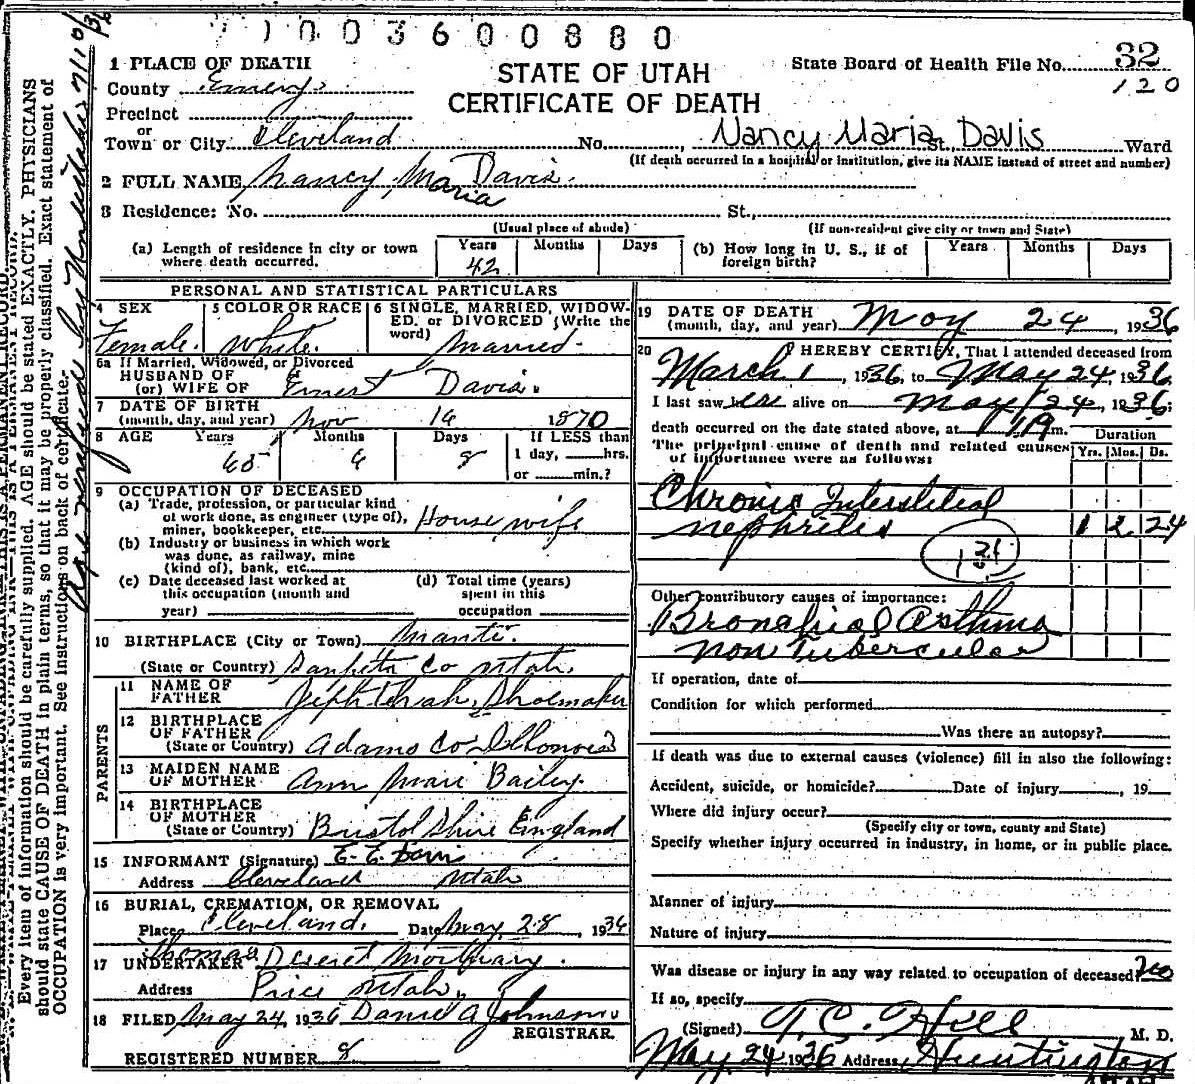 1003600880
1 PLACE OF DEATH
STATE OF UTAH
CERTIFICATE OF DEATH
State Board of Health File No. 32
120
County Emery
Precinct
or
Town or City Cleveland No. St. Ward
Nancy Maria Davis
(If death occurred in a hospital or institution, give its NAME instead of street and number)
2 FULL NAME Nancy Maria Davis
3 Residence: No. St.,
(Usual place of abode) (If non-resident give city or town and State)
(a) Length of residence in city or town where death occurred. Years 42 Months Days
(b) How long in U. S., if of foreign birth? Years Months Days
PERSONAL AND STATISTICAL PARTICULARS
4 SEX Female
5 COLOR OR RACE White
6 SINGLE, MARRIED, WIDOW-
ED, or DIVORCED (Write the
word) Married
6a If Married, Widowed, or Divorced
HUSBAND OF
(or) WIFE OF Ernest Davis
7 DATE OF BIRTH
(month, day, and year) Nov 16 1870
8 AGE Years 65 Months 6 Days 8
If LESS than
1 day, hrs.
or min.?
9 OCCUPATION OF DECEASED
(a) Trade, profession, or particular kind
of work done, as engineer (type of),
miner, bookkeeper, etc. House wife
(b) Industry or business in which work
was done, as railway, mine
(kind of), bank, etc.
(c) Date deceased last worked at
this occupation (month and
year)
(d) Total time (years)
spent in this
occupation
10 BIRTHPLACE (City or Town) Manti
(State or Country) Sanpete Co Utah
PARENTS
11 NAME OF
FATHER Jephthah Shoemaker
12 BIRTHPLACE
OF FATHER
(State or Country) Adams Co Illonois
13 MAIDEN NAME
OF MOTHER Ann Marie Bailey
14 BIRTHPLACE
OF MOTHER
(State or Country) Bristol Shire England
15 INFORMANT (Signature) E. E. Davis
Address Cleveland Utah
16 BURIAL, CREMATION, OR REMOVAL
Place Cleveland. Date May 28, 1936
17 UNDERTAKER Thomas Deseret Mortuary.
Address Price Utah.
18 FILED May 24, 1936 Daniel A Johnson
REGISTRAR.
REGISTERED NUMBER 8
19 DATE OF DEATH
(month, day, and year) May 24, 1936
20 I HEREBY CERTIFY, That I attended deceased from
March 1, 1936, to May 24, 1936
I last saw her alive on May 24, 1936;
death occurred on the date stated above, at m.
The principal cause of death and related causes
of importance were as follows:
Duration
Yrs. Mos. Ds.
Chronic Interstitial
nephritis 1 2 24
131
Other contributory causes of importance:
Bronchial Asthma
non Tubercular
If operation, date of
Condition for which performed
Was there an autopsy?
If death was due to external causes (violence) fill in also the following:
Accident, suicide, or homicide? Date of injury , 19
Where did injury occur?
(Specify city or town, county and State)
Specify whether injury occurred in industry, in home, or in public place.
Manner of injury
Nature of injury
Was disease or injury in any way related to occupation of deceased? no
If so, specify
(Signed) T. C. Hill M. D.
May 24 1936 Address Huntington
Every item of information should be carefully supplied. AGE should be stated EXACTLY. PHYSICIANS
should state CAUSE OF DEATH in plain terms, so that it may be properly classified. Exact statement of
OCCUPATION is very important. See instructions on back of certificate.
Age verified by